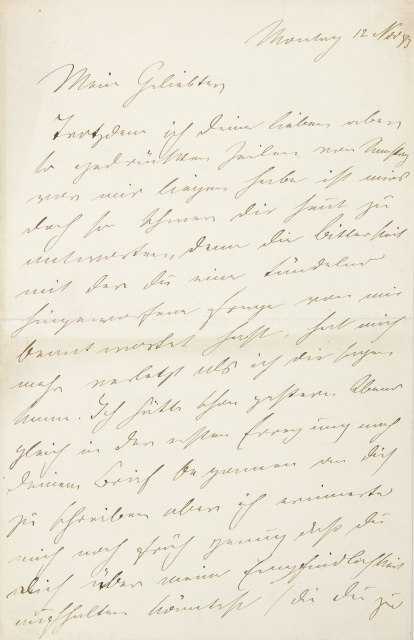 Montag 12 Nov 93
Mein Geliebter,
Trotzdem ich Deine lieben aber
so gedrückten Zeilen von Samstag
vor mir liegen habe ist mirs
doch so schwer Dir heut zu
antworten, denn die Bitterkeit
mit der Du eine tändelnd
hingeworfene Frage von mir
beantwortet hast, hat mich
mehr verletzt als ich Dir sagen
kann. Ich hätte schon gestern Abend
gleich in der ersten Erregung nach
Deinem Brief begonnen an Dich
zu schreiben aber ich erinnerte
mich noch früh genug daß Du
Dich über meine Empfindlichkeit
aufhalten könntest (die Du zu